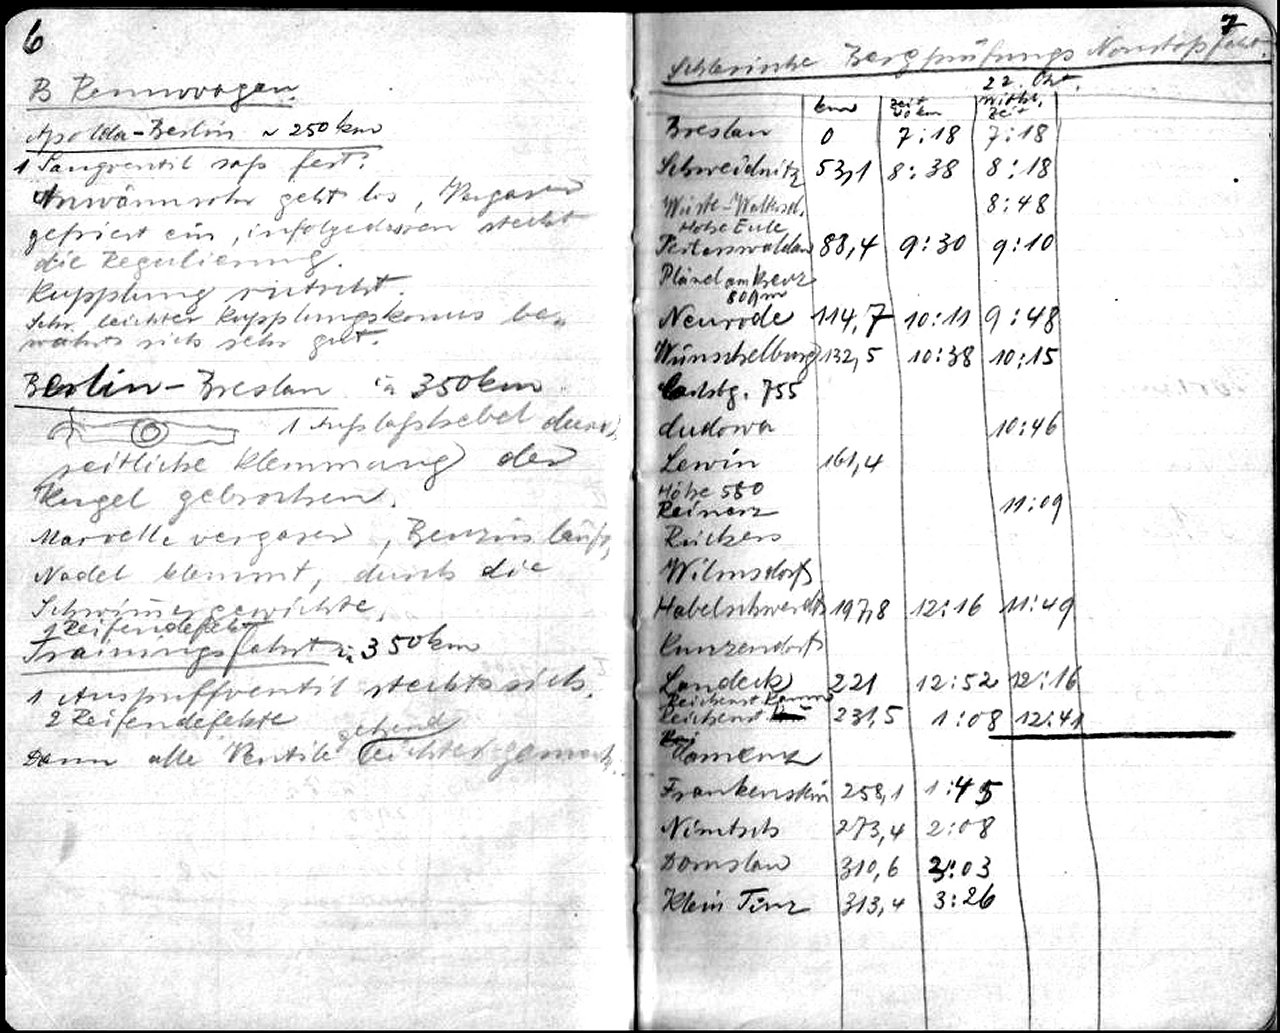 6
B Rennwagen.
Apolda-Berlin ~ 250 km
1 Saugventil saß fest.
Anwärmrohr geht los, Vergaser
gefriert ein, infolgedessen steckt
die Regulierung.
Kupplung rutscht.
Sehr leichter Kupplungskonus be-
währt sich sehr gut.
Berlin-Breslau 350 km
1 Auslaßhebel durch
seitliche Klemmung der
Kugel gebrochen.
Marvelle vergaser, Benzin läuft,
Nadel klemmt, durch die
Schwimergewichte,
1 Reifendefekt
Trainingsfahrt 350 km
1 Auspuffventil steckt sich.
2 Reifendefekte
gehend
Dann alle Ventile leichter gemacht.
7
Schlesische Bergprüfungs Nonstopfahrt.
22. Okt.
km Zeit 40 km Wirkl. Zeit
Breslau 0 7:18 7:18
Schweidnitz 53,1 8:38 8:18
Wüste-Waltersd. 8:48
Hohe Eule
Peterswaldau 88,4 9:30 9:10
Plänel am Kreuz
809m
Neurode 114,7 10:11 9:48
Wünschelburg 132,5 10:38 10:15
Carlsbg. 755
Cudowa 10:46
Lewin 161,4
Höhe 580
Reinerz 11:09
Rückers
Wilmsdorf
Habelschwerdt 197,8 12:16 11:49
Kunzendorf
Landeck 221 12:52 12:16
Reichenst Kamm
Reichenst 231,5 1:08 12:41
Camenz
Frankenstein 258,1 1:45
Nimtsch 273,4 2:08
Domslau 310,6 3:03
Klein Tinz 313,4 3:26